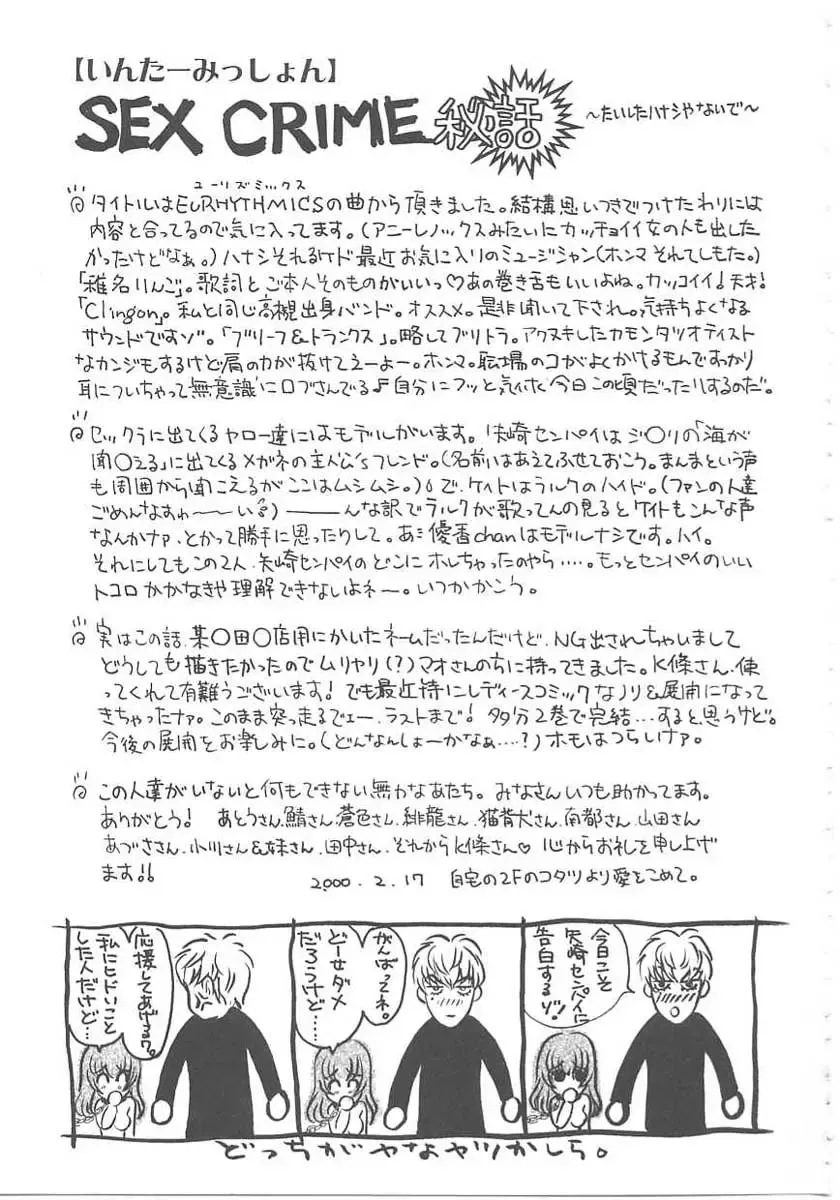 【いんたーみっしょん】
SEX CRIME 秘話
～たいしたハナシやないで～
ユーリズミックス
タイトルはEURHYTHMICSの曲から頂きました。結構思いつきでつけたわりには
内容と合ってるので気に入ってます。(アニーレノックスみたいにカッチョイイ女の人も出した
かったけどなぁ。)ハナシそれるケド最近お気に入りのミュージシャン(ホンマそれてしもた。)
「椎名りんご」。歌詞とご本人そのものがいいっ♡あの巻き舌もいいよね。カッコイイ!天才!
「Clingon」。私と同じ高槻出身バンド。オススメ。是非聞いて下され。気持ちよくなる
サウンドですゾ。「ブリーフ&トランクス」。略してブリトラ。アクヌキしたカモンタツオテイスト
なカンジもするけど肩の力が抜けてえーよー。ホンマ。職場のコがよくかけるもんですっかり
耳についちゃって無意識に口ずさんでる♪自分にフッと気付く今日この頃だったりするのだ。
セックラに出てくるヤロー達にはモデルがいます。矢崎センパイはジ〇リの「海が
聞〇える」に出てくるメガネの主人公'sフレンド。(名前はあえてふせておこう。まんまという声
も周囲から聞こえるがここはムシムシ。)で、ケイトはラルクのハイド。(ファンの人達
ごめんなすわ～～い)――んな訳でラルクが歌ってんの見るとケイトもこんな声
なんかナァ、とかって勝手に思ったりして。あ、優香chanはモデルナシです。ハイ。
それにしてもこの2人、矢崎センパイのどこにホレちゃったのやら……。もっとセンパイのいい
トコロかかなきゃ理解できないよネー。いつかかこう。
実はこの話、某〇田〇店用にかいたネームだったんだけど、NG出されちゃいまして
どうしても描きたかったのでムリヤリ(?)マオさんのちに持ってきました。K條さん、使
ってくれて有難うございます!でも最近特にレディースコミックなノリ&展開になって
きちゃったナァ。このまま突っ走るでェー、ラストまで!多分2巻で完結…すると思うけど。
今後の展開をお楽しみに。(どんなんしょーかなぁ…?)ホモはつらいナァ。
この人達がいないと何もできない無力なあたち。みなさんいつも助かってます。
ありがとう! あとうさん、鯖さん、蒼色さん、緋龍さん、猫背犬さん、南都さん、山田さん
あづささん、小川さん&妹さん、田中さん、それからK條さん♡心からお礼を申し上げ
ます!!
2000.2.17 自宅の2Fのコタツより愛をこめて。
今日こそ
矢崎センパイに
告白するゾ!
がんばってネ。
どーせダメ
だろうけど…
応援してあげるワ。
私にヒドいこと
した人だけど…
どっちがヤなヤツかしら。